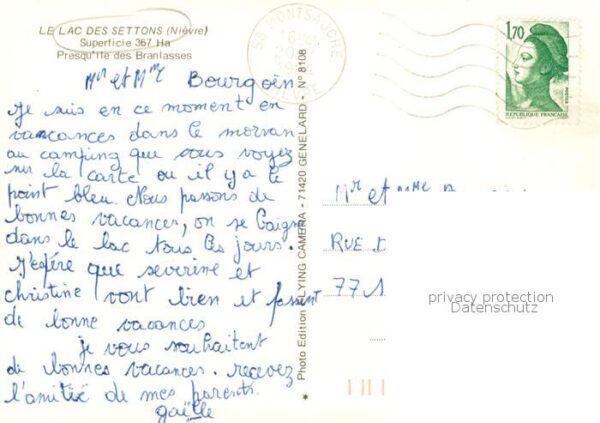 LE LAC DES SETTONS (Nièvre)
Superficie 367 Ha
Presqu'île des Branlasses
Mr et Mme Bourgoin
Je suis en ce moment en
vancances dans le morvan
au camping que vous voyez
sur la carte ou il y a le
point bleu. Nous passons de
bonnes vacances, on se baigne
dans le lac tous les jours.
J'espére que severine et
christine vont bien et fassent
de bonne vacances
je vous souhaitent
de bonnes vacances. recevez
l'amitié de mes parents.
gaëlle
58 MONTSAUCHE
Photo Edition FLYING CAMERA - 71420 GENELARD - N° 8108
1,70
POSTES
REPUBLIQUE FRANCAISE
Mr et Mme
RUE
77
privacy protection
Datenschutz